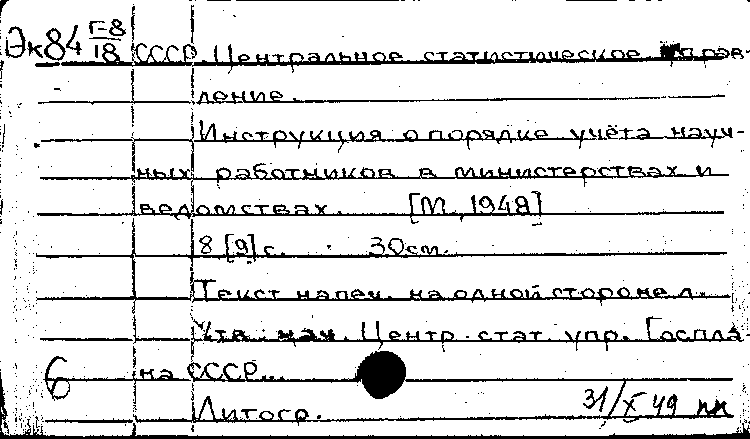 Эк84 Г-8/18 СССР. Центральное статистическое управ-
ление.
Инструкция о порядке учёта науч-
ных работников в министерствах и
ведомствах. [М., 1948]
8 [9] с. 30 см.
Текст напеч. на одной стороне л.
Утв. нач. Центр. стат. упр. Госпла-
на СССР...
6
Литогр. 31/X 49